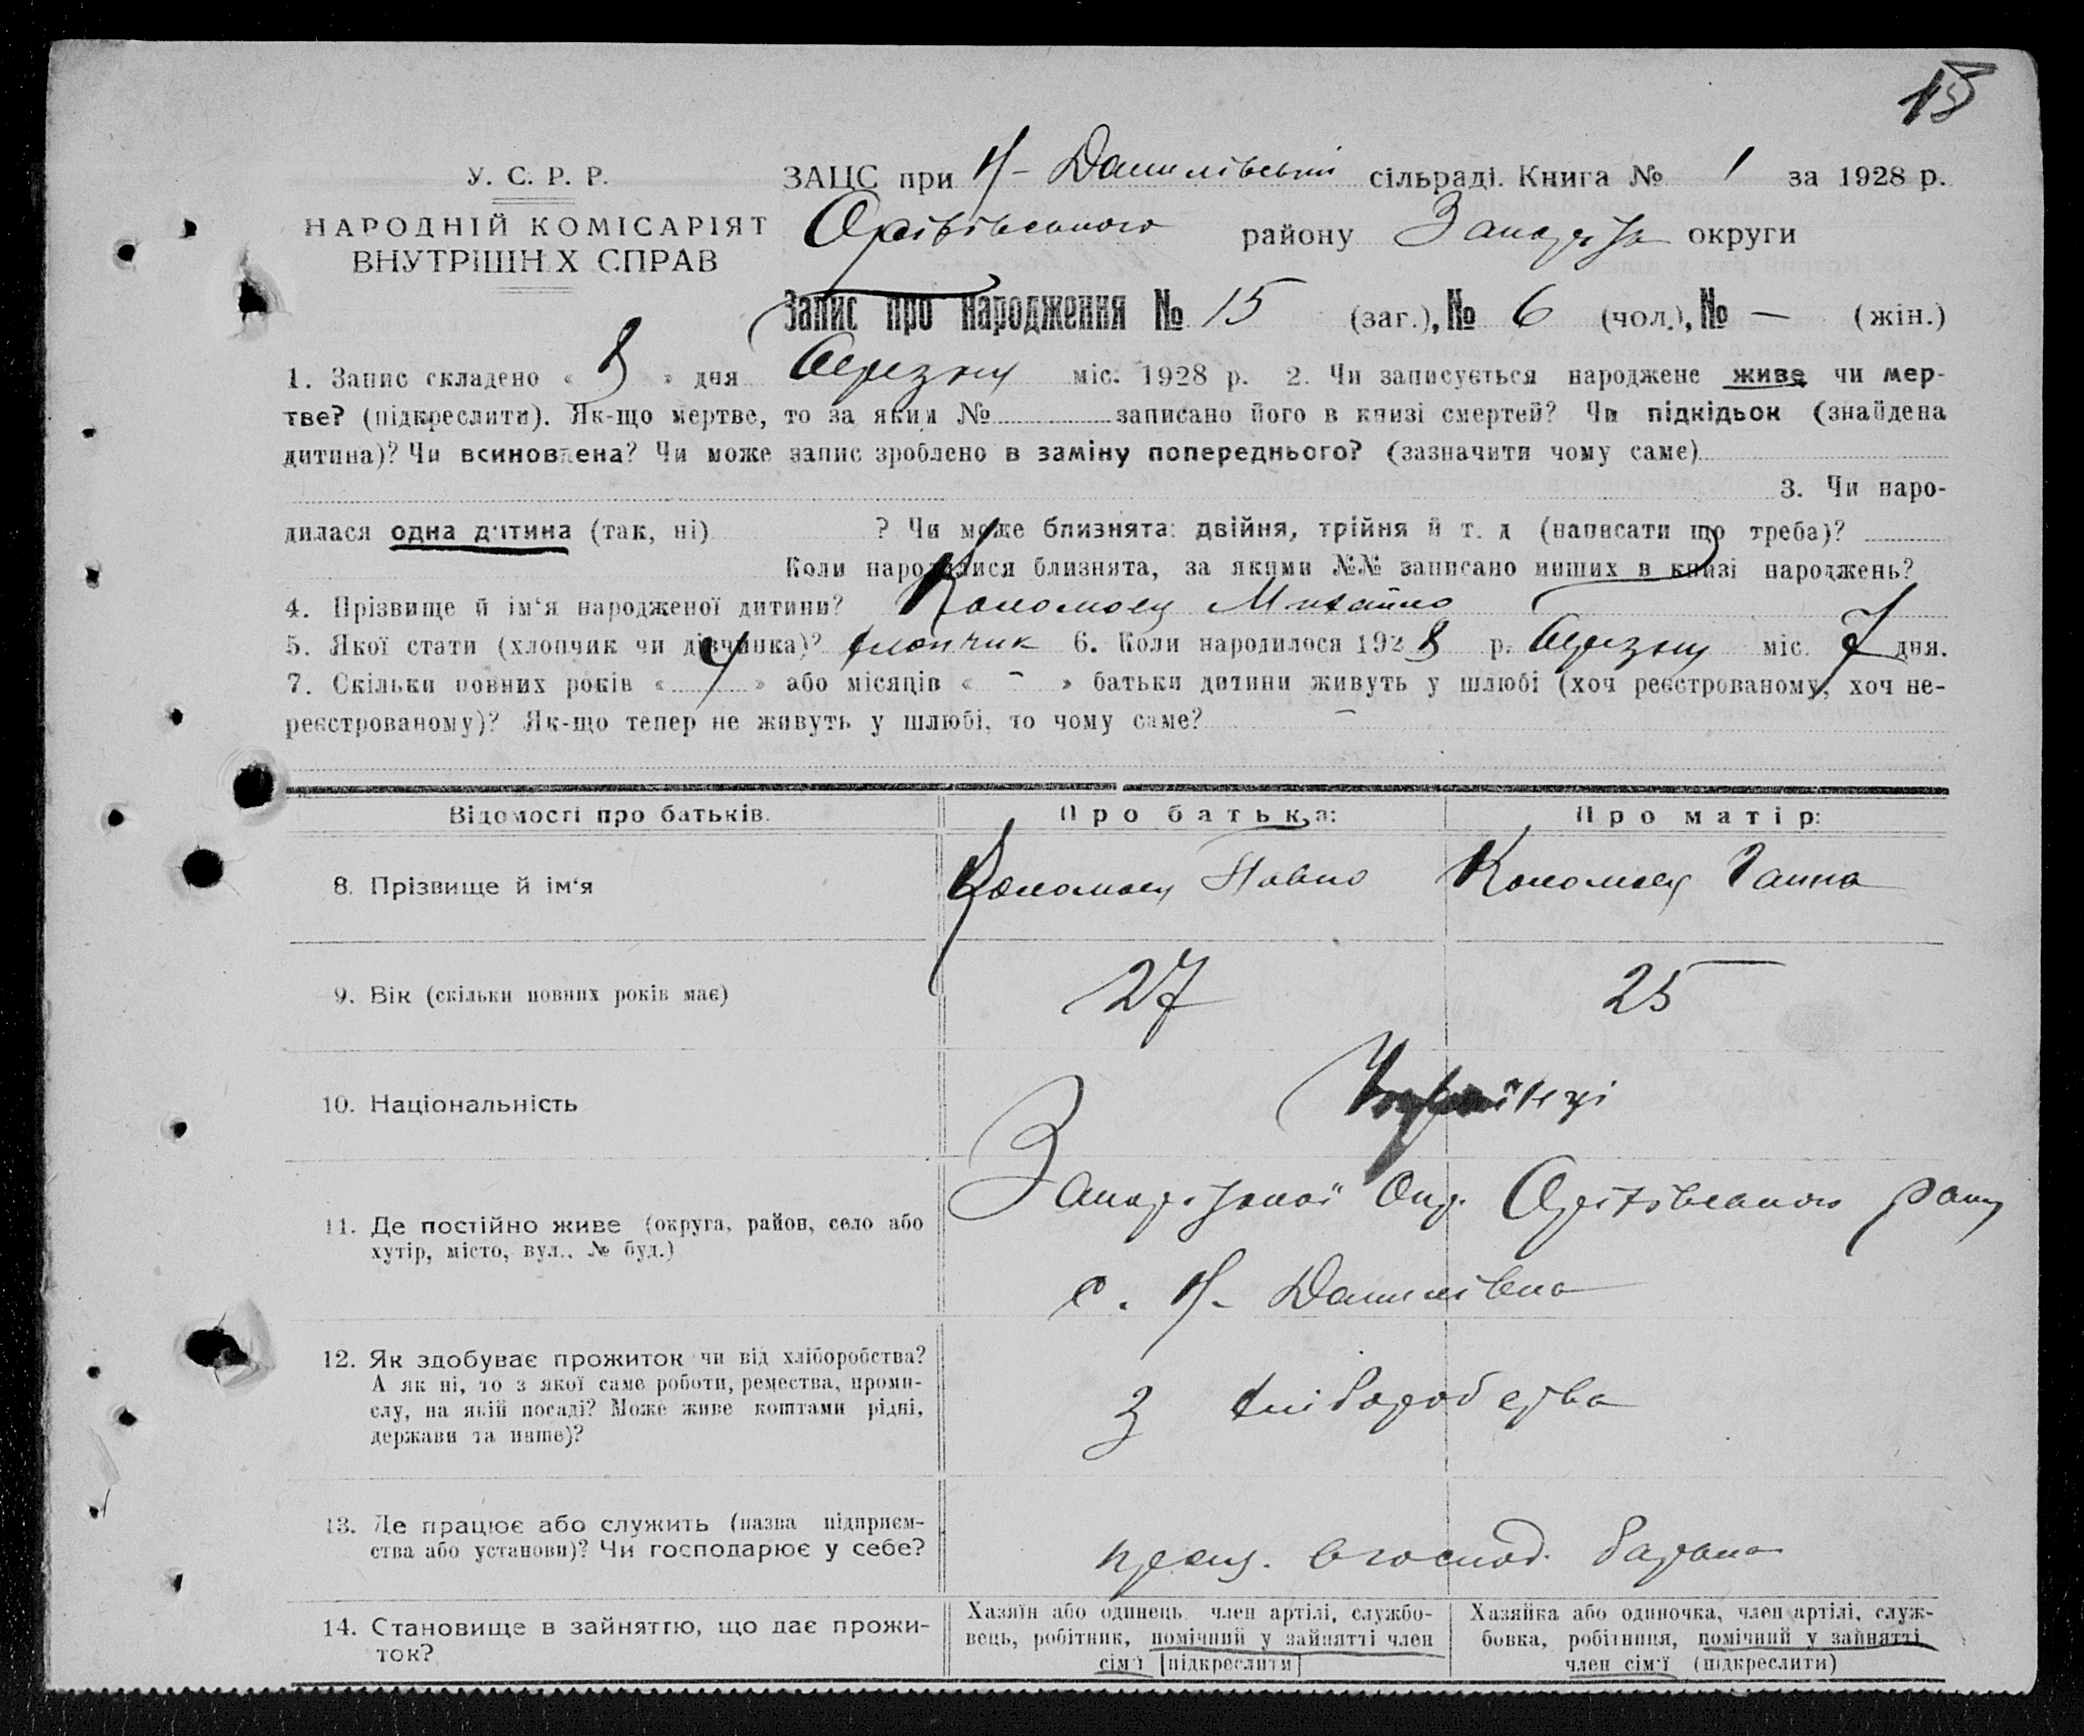 15
У. С. Р. Р.
НАРОДНІЙ КОМІСАРІЯТ
ВНУТРІШНІХ СПРАВ
ЗАЦС при Н- Данилівській сільраді. Книга № 1 за 1928 р.
Оріхівського району Запоріз округи
Запис про народження № 15 (заг.), № 6 (чол.), № — (жін.)
1. Запис складено « 8 » дня березня міс. 1928 р. 2. Чи записується народжене живе чи мер-
тве? (підкреслити). Як-що мертве, то за яким № записано його в книзі смертей? Чи підкідьок (знайдена
дитина)? Чи всиновлена? Чи може запис зроблено в заміну попереднього? (зазначити чому саме)
3. Чи наро-
дилася одна дитина (так, ні) ? Чи може близнята: двійня, трійня й т. д (написати що треба)?
Коли народилися близнята, за якими №№ записано инших в книзі народжень?
4. Прізвище й ім‘я народженої дитини? Коломоец Михайло
5. Якої стати (хлопчик чи дівчинка)? хлопчик 6. Коли народилося 1928 р. березня міс. 7 дня.
7. Скільки повних років « 4 » або місяців « - » батьки дитини живуть у шлюбі (хоч реєстрованому, хоч не-
реєстрованому)? Як-що тепер не живуть у шлюбі, то чому саме? —
Відомості про батьків. Про батька: Про матір:
8. Прізвище й ім‘я Коломоец Павло Коломоец Ганна
9. Вік (скільки повних років має) 27 25
10. Національність Українці
11. Де постійно живе (округа, район, село або
хутір, місто, вул., № буд.)
Запорізької Окр. Оріхівського рану
с. Н- Данилівка
12. Як здобуває прожиток чи від хліборобства?
А як ні, то з якої саме роботи, ремества, проми-
слу, на якій посаді? Може живе коштами рідні,
держави та инше)?
З хліборобства
13. Де працює або служить (назва підприєм-
ства або установи)? Чи господарює у себе?
прац. в господ. батька
14. Становище в зайняттю, що дає прожи-
ток?
Хазяїн або одинець, член артілі, службо-
вець, робітник, помічний у зайнятті член
сім‘ї [підкреслити]
Хазяйка або одиночка, член артілі, служ-
бовка, робітниця, помічний у зайнятті
член сім‘ї (підкреслити)